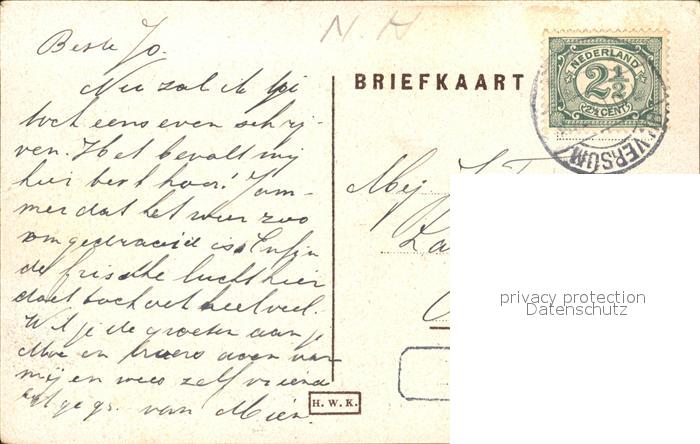 N. H
Beste Jo.
Nu zal ik je
toch eens even schrij-
ven. Het bevalt mij
hier best hoor! Jam-
mer dat het weer zoo
omgedraaid is. Enfin
de frissche lucht hier
doet toch ook heel veel.
Wil je de groeten aan je
Moe en broers doen van
mij en wees zelf vriend.
geg. van Mien.
BRIEFKAART
NEDERLAND
2½
2½ CENT
VERSUM
Mej
H. W. K.
privacy protection
Datenschutz